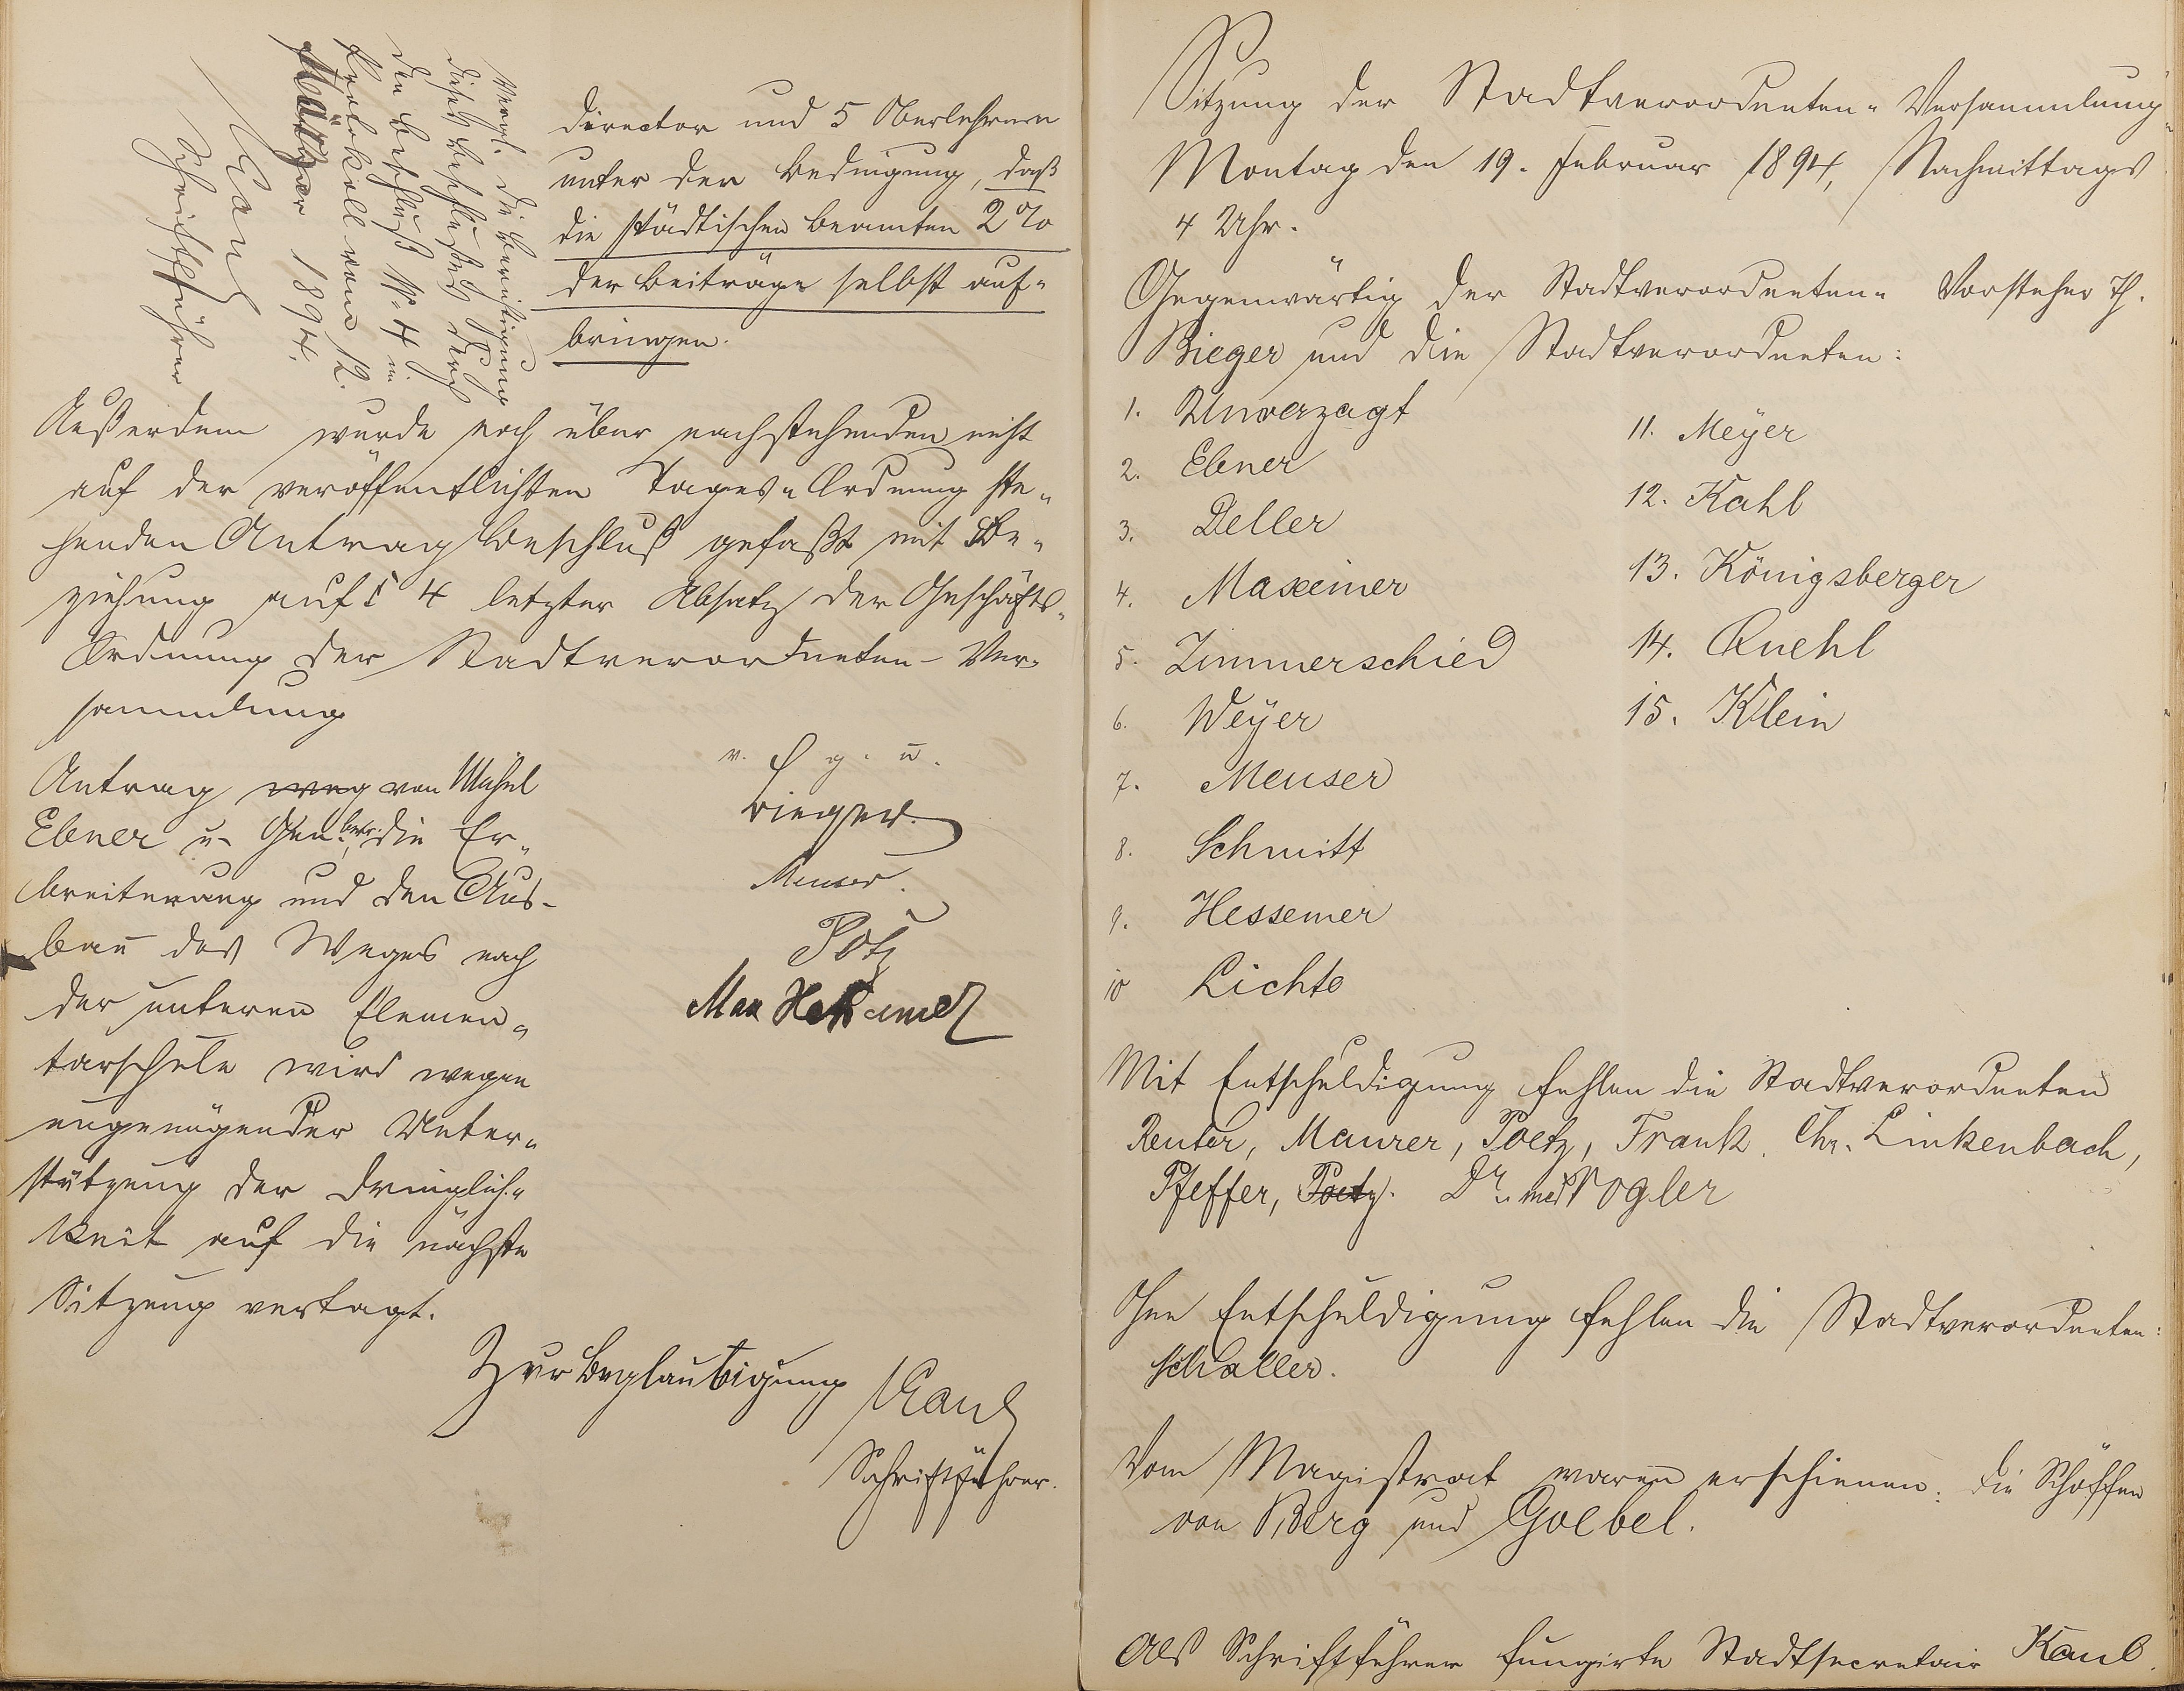 Vergl. die Berichtigung
dieses Beschlusses durch
den Beschluß № 4 im
Protokoll vom 12.
März 1894.
Kaul
Schriftführer
director und 5 Oberlehrern
unter der Bedingung, daß
die städtischen Beamten 2 %
der Beiträge selbst auf-
bringen.
Außerdem wurde noch über nachstehenden nicht
auf der veröffentlichten Tages-Ordnung ste-
henden Antrag Beschluß gefaßt mit Be-
ziehung auf § 4 letzter Absatz der Geschäfts-
Ordnung der Stadtverordneten-Ver-
sammlung
Antrag weg von Mich.
Ebner u. Gen. betr. die Er-
breiterung und den Aus-
bau des Weges nach
der unteren Elemen-
tarschule wird wegen
ungenügender Unter-
stützung der Dringlich-
keit auf die nächste
Sitzung vertagt.
v. g. u.
Bieger.
Meuser.
Pötz
Max Hessemer
Zur Beglaubigung
Kaul
Schriftführer.
Sitzung der Stadtverordneten-Versammlung
Montag den 19. Februar 1894, Nachmittags
4 Uhr.
Gegenwärtig der Stadtverordneten-Vorsteher Th.
Bieger und die Stadtverordneten:
1. Unverzagt
2. Ebner
3. Deller
4. Maxeiner
5. Zimmerschied
6. Weÿer
7. Meuser
8. Schmitt
9. Hessemer
10 Lichte
11. Meÿer
12. Kahl
13. Königsberger
14. Quehl
15. Klein
Mit Entschuldigung fehlen die Stadtverordneten
Reuter, Maurer, Poetz, Frank, Chr. Linkenbach,
Pfeffer, Poetz. Dr. med Vogler
Ohne Entschuldigung fehlen die Stadtverordneten:
Schaller.
Vom Magistrat waren erschienen: die Schöffen
von Berg und Goebel.
Als Schriftführer fungirte Stadtsecretair Kaul.